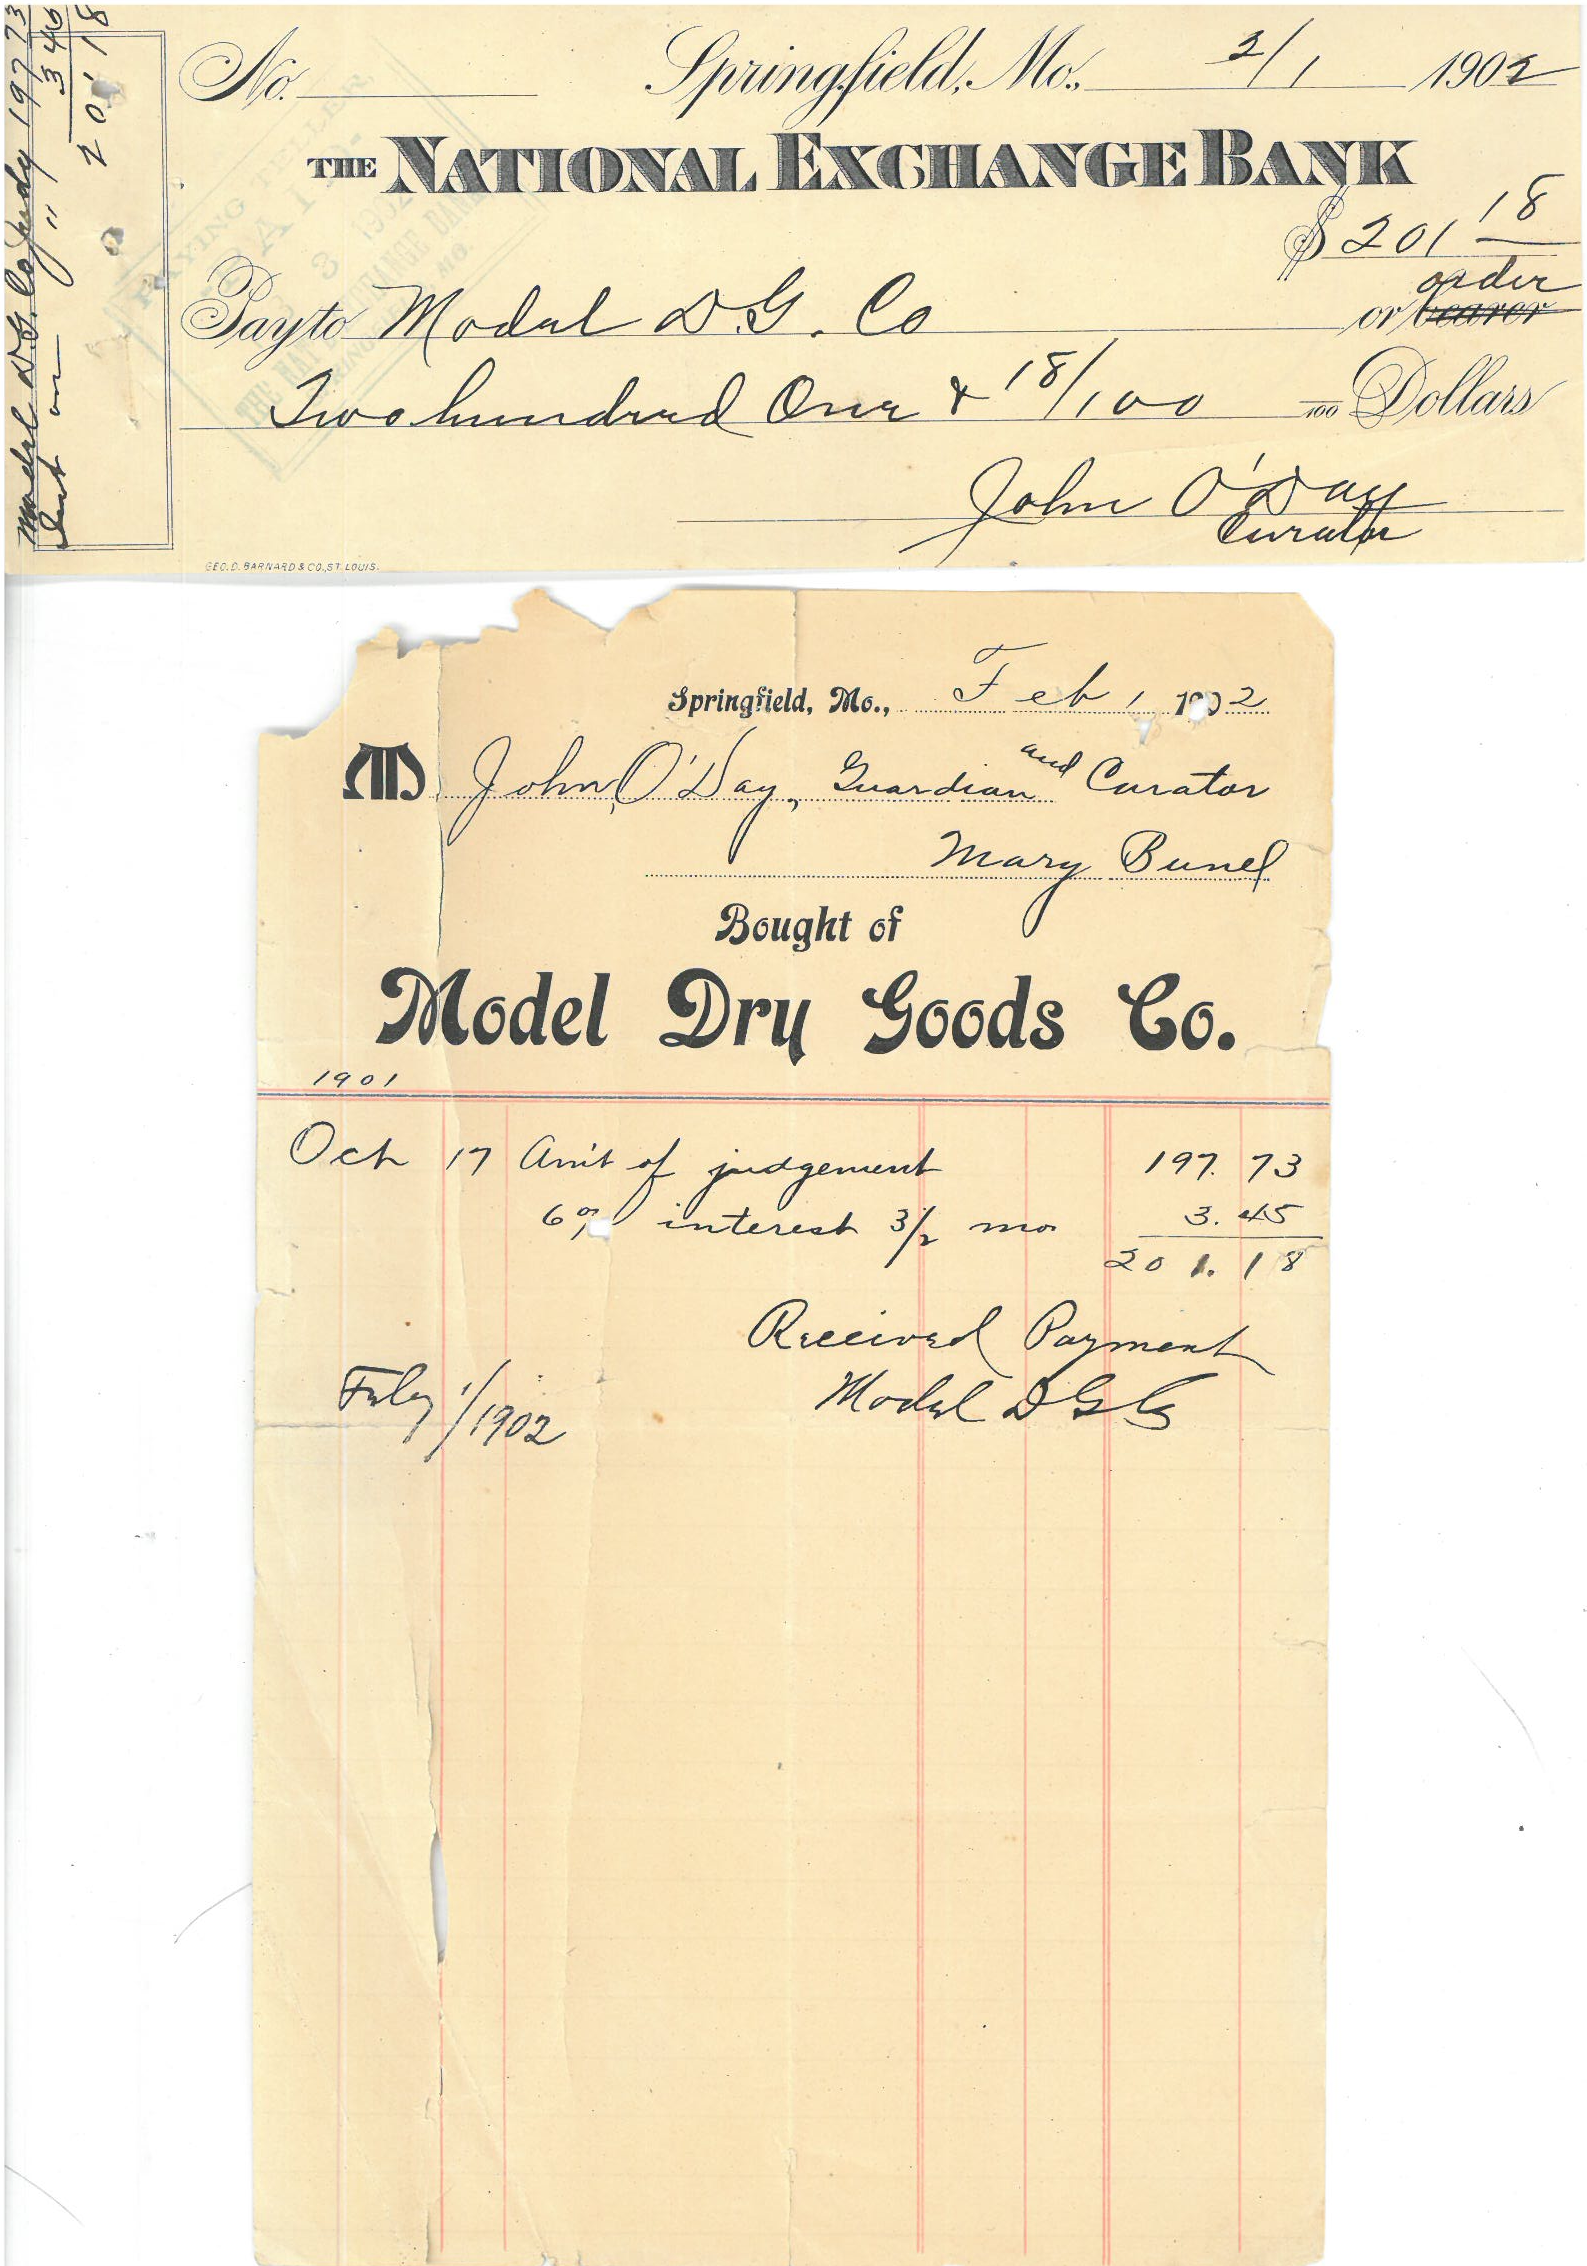 Model D.G. Co Judg 197 73
Int on " 3 45
201 18
No. Springfield, Mo., 2/1 1902
THE NATIONAL EXCHANGE BANK
$ 201 18
order
Pay to Model D.G. Co or bearer
Two hundred One & 18/100 100 Dollars
John O'Day
Curator
GEO. D. BARNARD & CO., ST. LOUIS.
PAYING TELLER
PAID
3 1902
THE NATIONAL EXCHANGE BANK
SPRINGFIELD MO.
Springfield, Mo., Feb 1 1902
M John O'Day, Guardian and Curator
Mary Bunel
Bought of
Model Dry Goods Co.
1901
Oct 17 Am't of judgement 197. 73
6% interest 3/2 mo 3. 45
201. 18
Received Payment
Feby 1/1902 Model D G Co